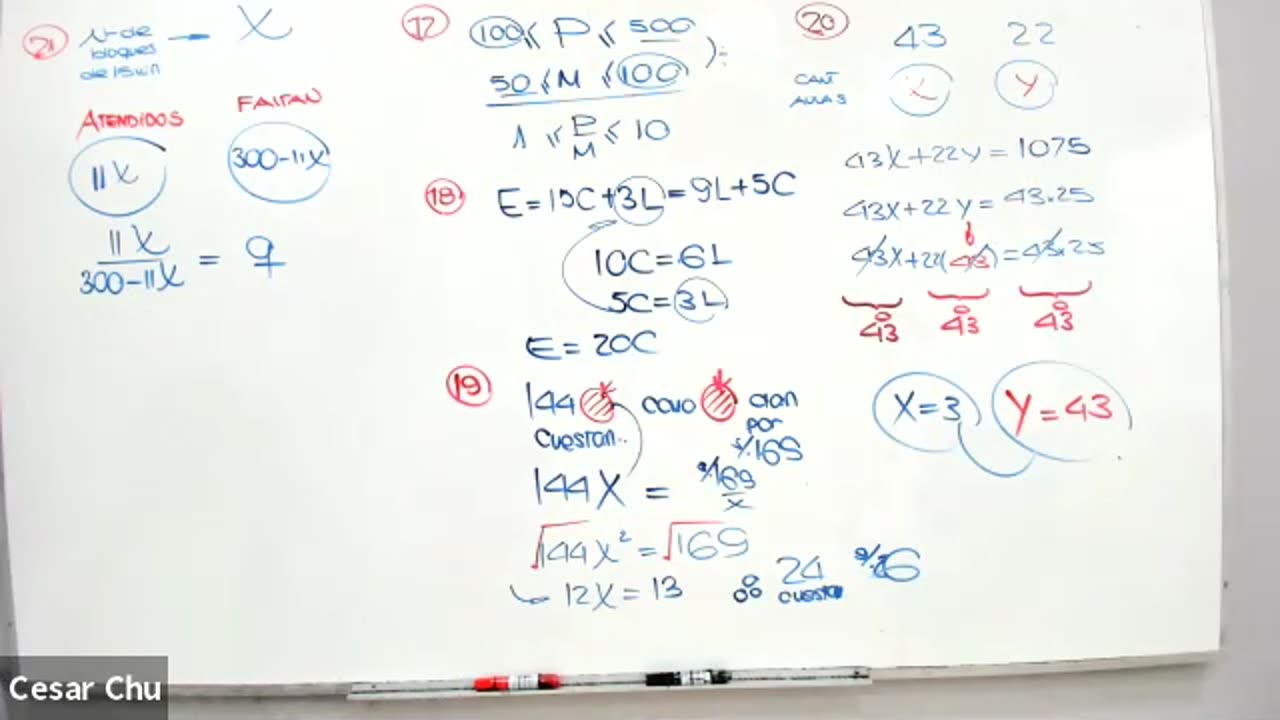 21 N° de bloques de 15min → X
ATENDIDOS FALTAN
11X 300-11X
11X / 300-11X = 9
17 100 ≤ P ≤ 500
50 ≤ M ≤ 100 ) ÷
1 ≤ P/M ≤ 10
18 E = 15C + 3L = 9L + 5C
10C = 6L
5C = 3L
E = 20C
19 144 cada dan por
cuestan.. s/.169
144X = s/.169 / x
√144X² = √169
12X = 13 ∴ 24 cuestan s/.26
20 43 22
CANT AULAS X Y
43X+22Y = 1075
43X+22Y = 43.25
43X+22(43) = 43.25
43 43 43
X=3 Y=43
Cesar Chu